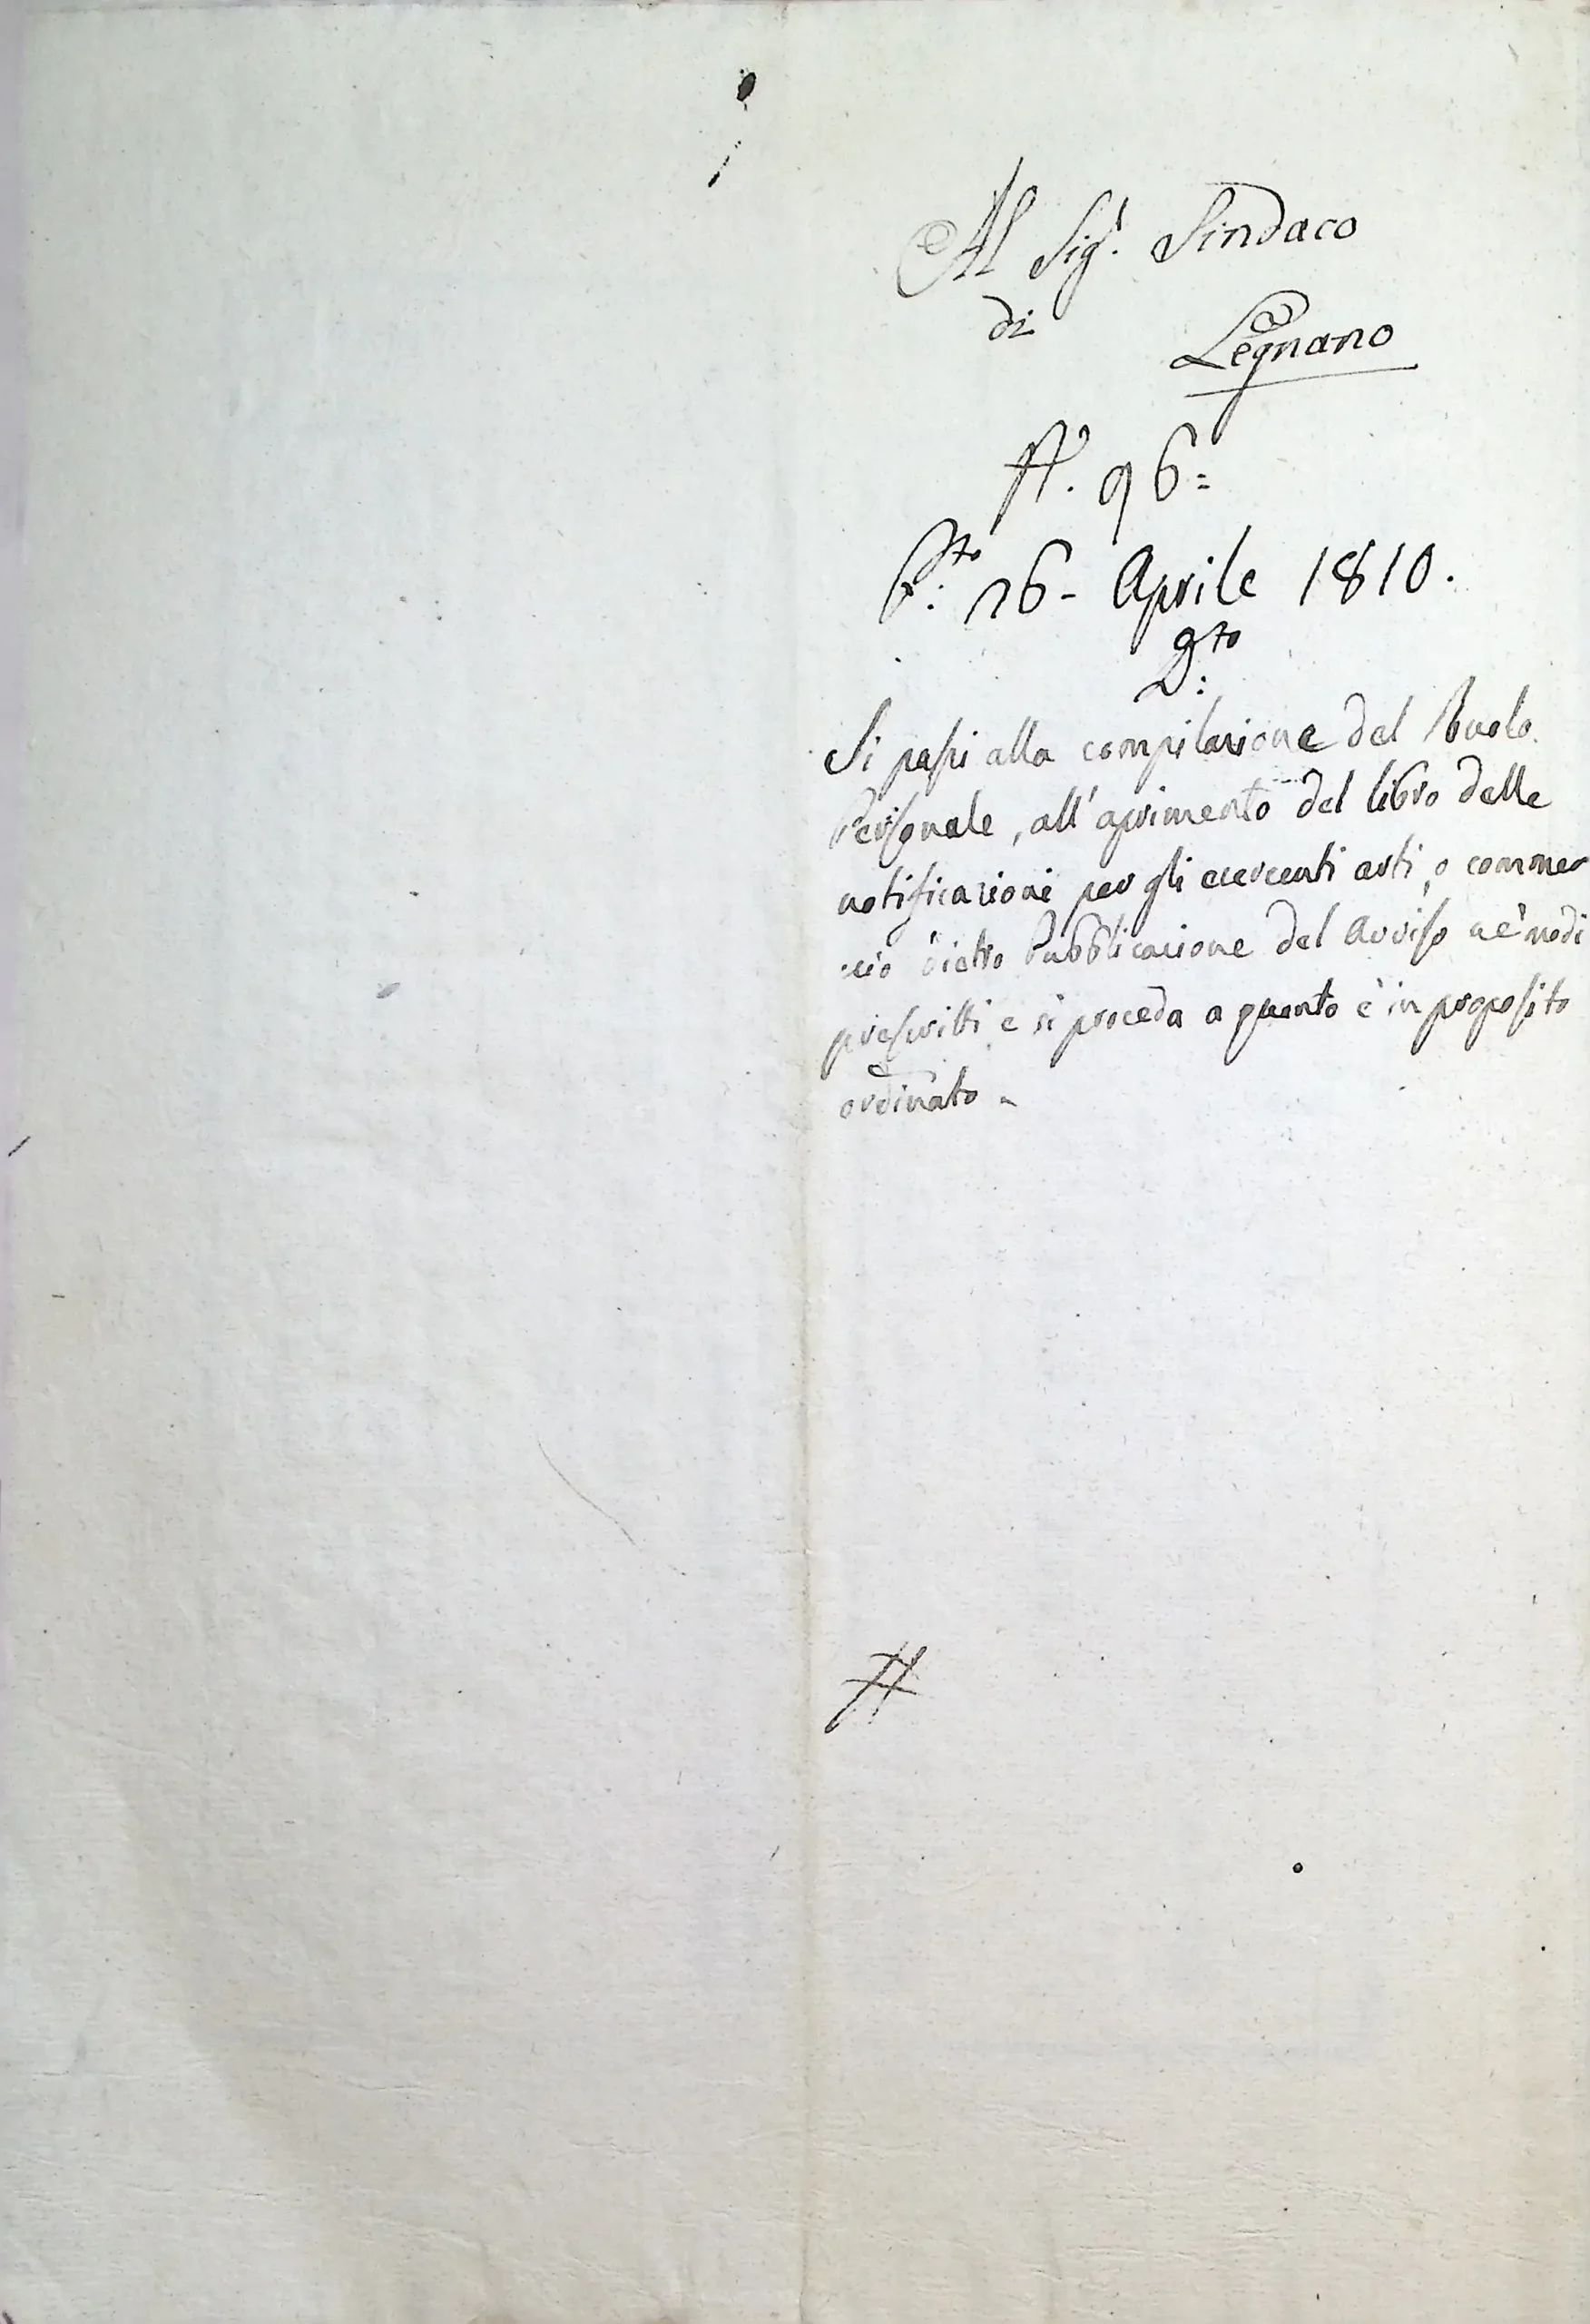 Al Sig.r Sindaco
di
Legnano
N.o 96=
P.to 26- Aprile 1810.
D.to
Si passi alla compilazione del Ruolo
Personale, all'aprimento del libro delle
notificazioni per gli esercenti arti, o commer
cio dietro Pubblicazione del Avviso ne' modi
prescritti e si proceda a quanto è in proposito
ordinato -